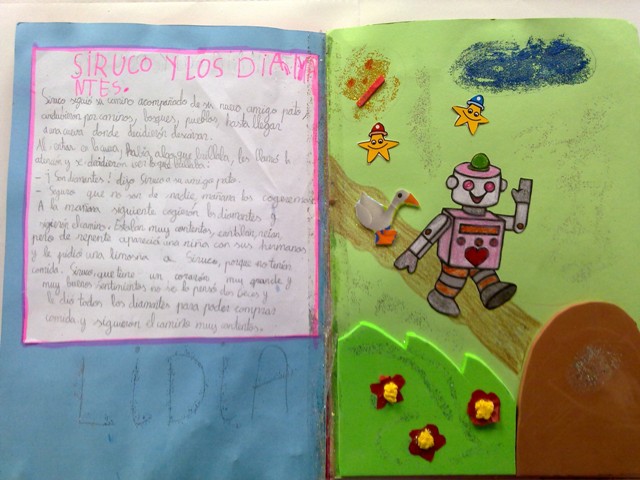 SIRUCO Y LOS DIAMA
NTES.
Siruco siguió su camino acompañado de su nuevo amigo pato
anduvieron por caminos, bosques, pueblos, hasta llegar
a una cueva donde decidieron descansar.
Al entrar en la cueva, había algo que brillaba, les llamó la
atención y se dirigieron ver lo que brillaba.
- ¡Son diamantes! dijo Siruco a su amigo pato.
- Seguro que no son de nadie, mañana los cogeremos
A la mañana siguiente cogieron los diamantes y
siguieron el camino. Estaban muy contentos, cantaban, reían,
pero de repente apareció una niña con sus hermanos
y le pidió una limosna a Siruco, porque no tenían
comida. Siruco, que tiene un corazón muy grande y
muy buenos sentimientos no se lo pensó dos veces y
le dió todos los diamantes para poder comprar
comida y siguieron el camino muy contentos.
LIDIA